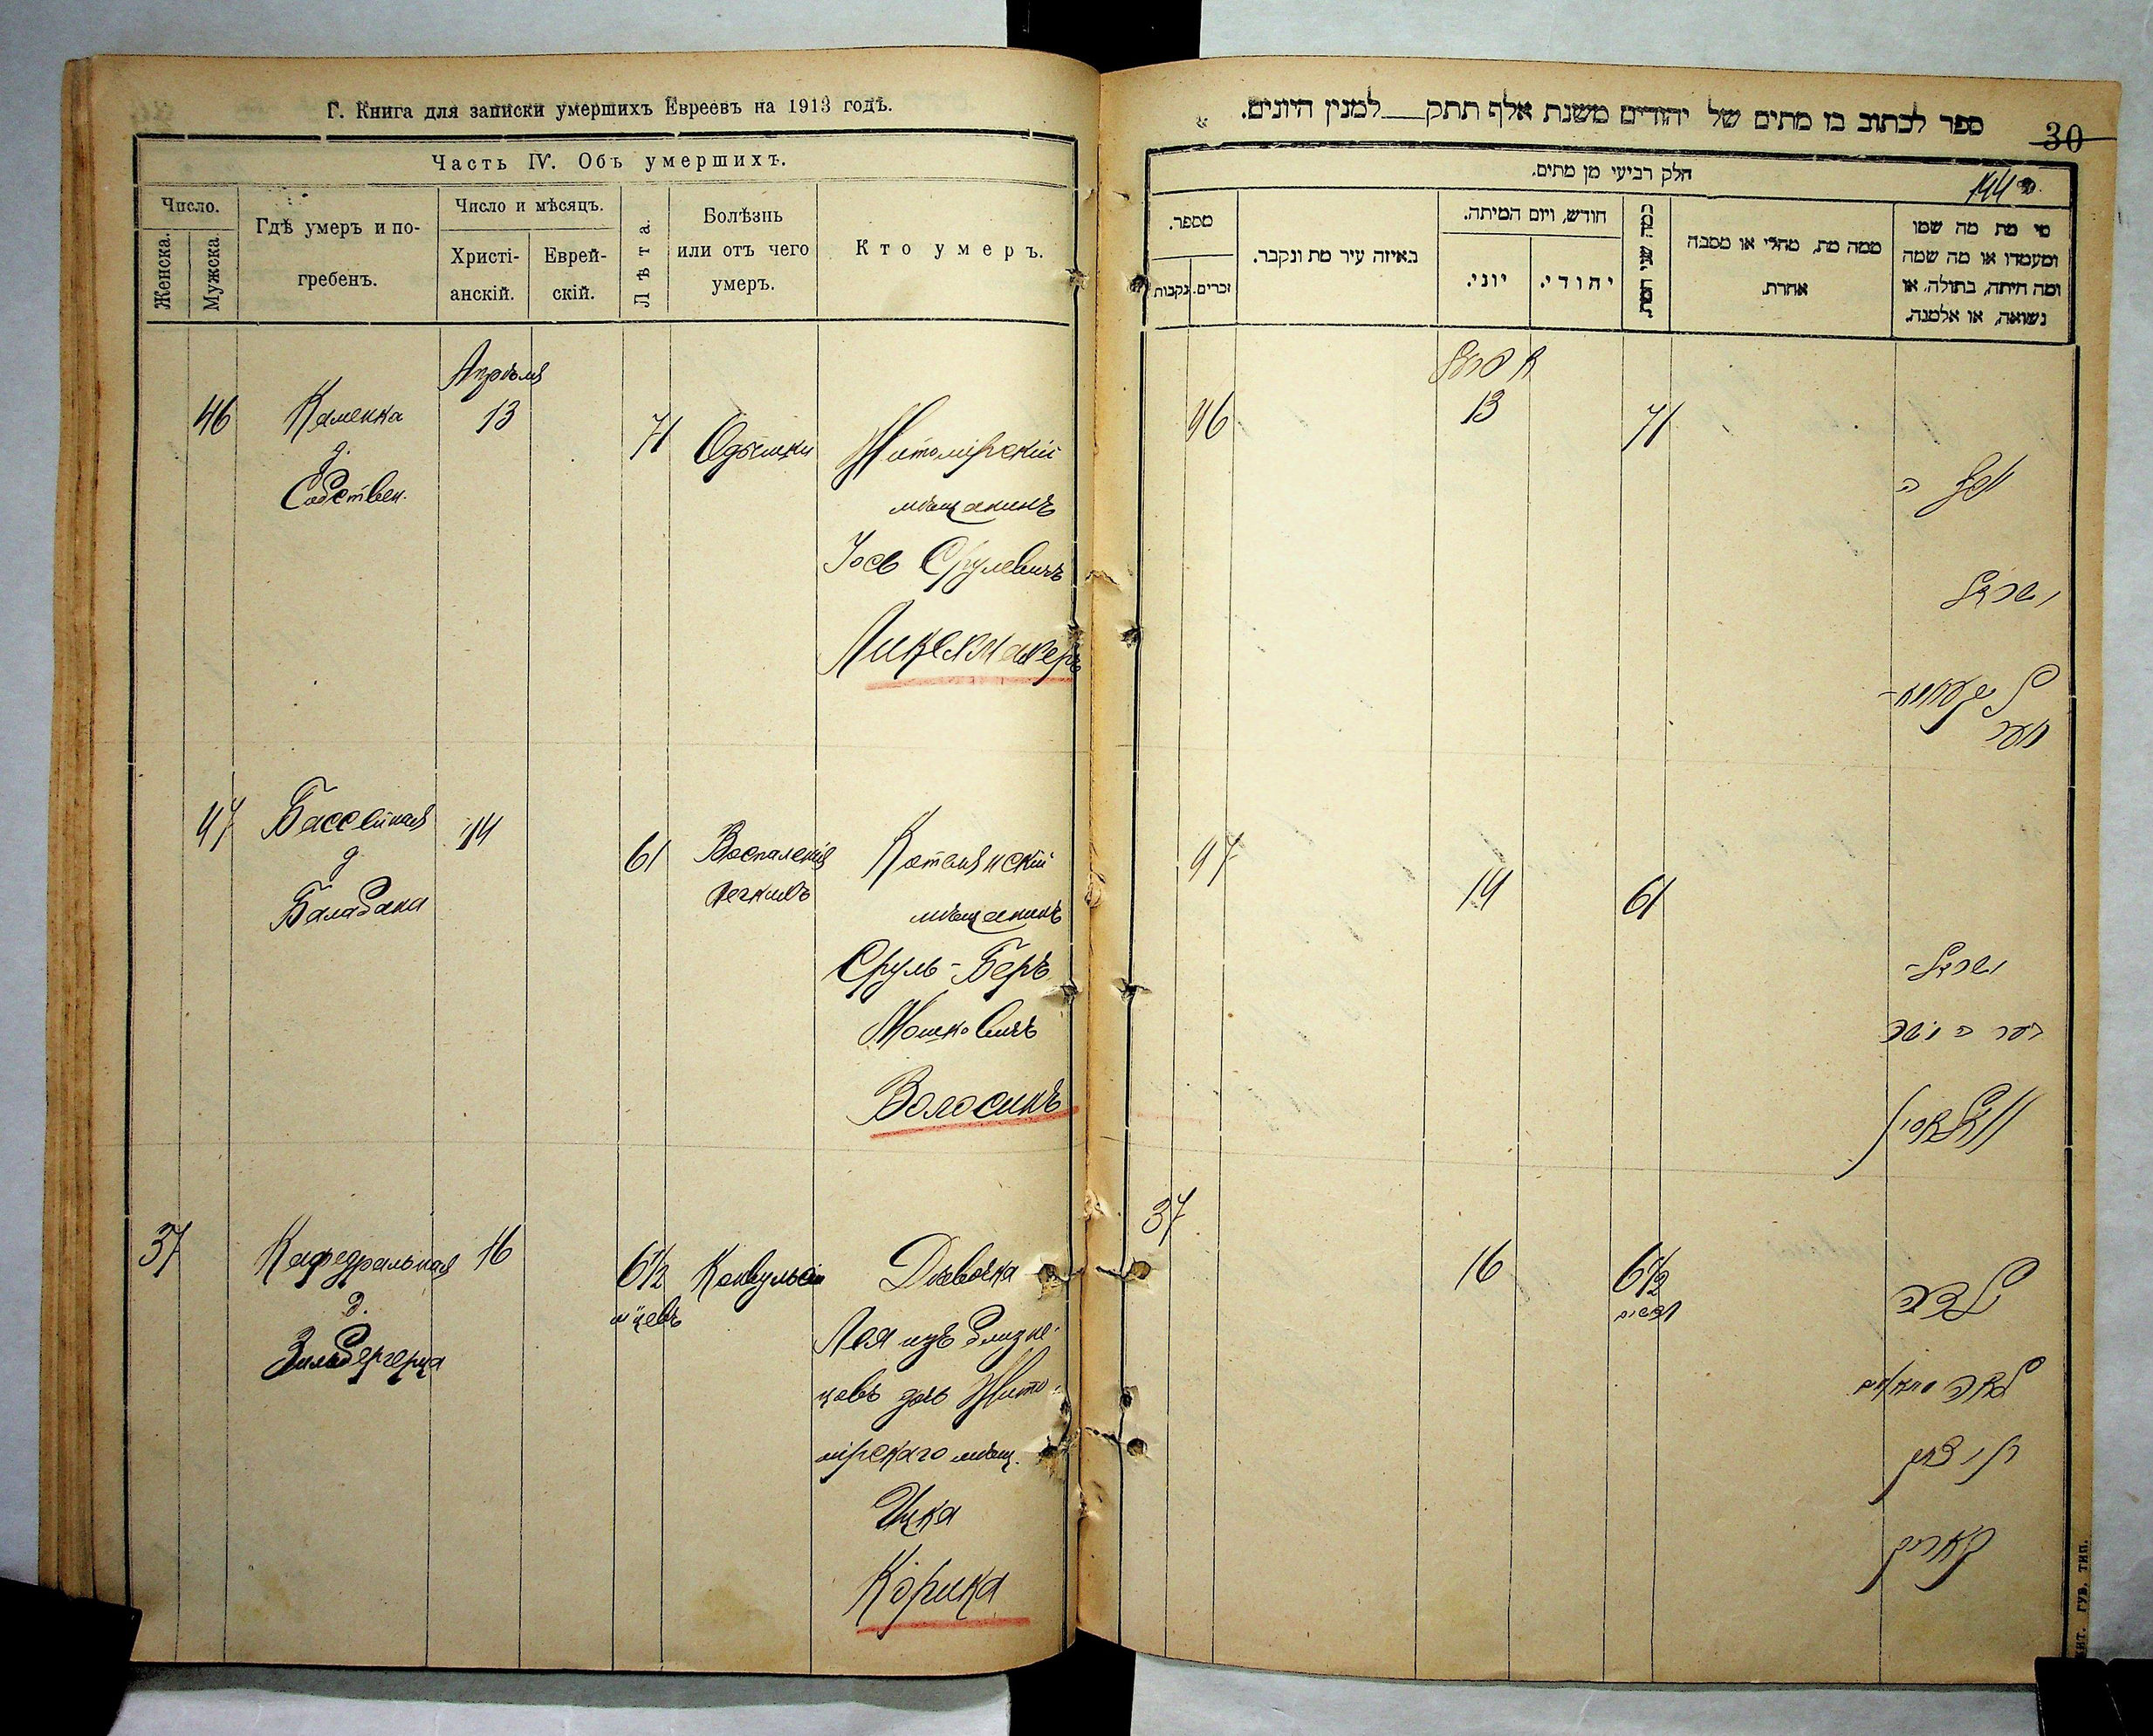 Г. Книга для записки умершихъ Евреевъ на 1913 годъ.
Часть IV. Объ умершихъ.
Число.
Женска.
Мужска.
Гдѣ умеръ и по-
гребенъ.
Число и мѣсяцъ.
Христі-
анскій.
Еврей-
скій.
Лѣта.
Болѣзнь
или отъ чего
умеръ.
Кто умеръ.
Апрѣля
46
Каменка
д.
Собствен.
13
71
Одышки
Житомірскій
мѣщанинъ
Іось Срулевичъ
47
Бассейная
д
Балабана
14
61
Воспаленія
легкихъ
мѣщанинъ
Сруль-Беръ
Мошковичъ
Волосинъ
37
Кафедральная
д.
Зильбергерца
16
6½
м-цевъ
Конвульсіи
Дѣвочка
Лея изъ близне-
цовъ дочь Жито-
мірскаго мѣщ.
Ицка
Корика
ספר לכתוב בו מתים של יהודים משנת אלף תתק למנין היונים.
30
חלק רביעי מן מתים.
מספר.
נקבות
זכרים.
באיזה עיר מת ונקבר.
חודש, ויום המיתה.
יוני.
יהודי.
כמה שני המת.
ממה מת, מחלי או מסבה
אחרת.
מי מת מה שמו
ומעמדו או מה שמה
ומה היתה, בתולה, או
נשואה, או אלמנה.
46
13
71
יוסף ב
ישראל
47
14
61
ישראל-
בער ב משה
וואלאסין
37
16
6½
חדשים
ילדה
לאה
בת יצחק
קאריק
ЖИТ. ГУБ. ТИП.